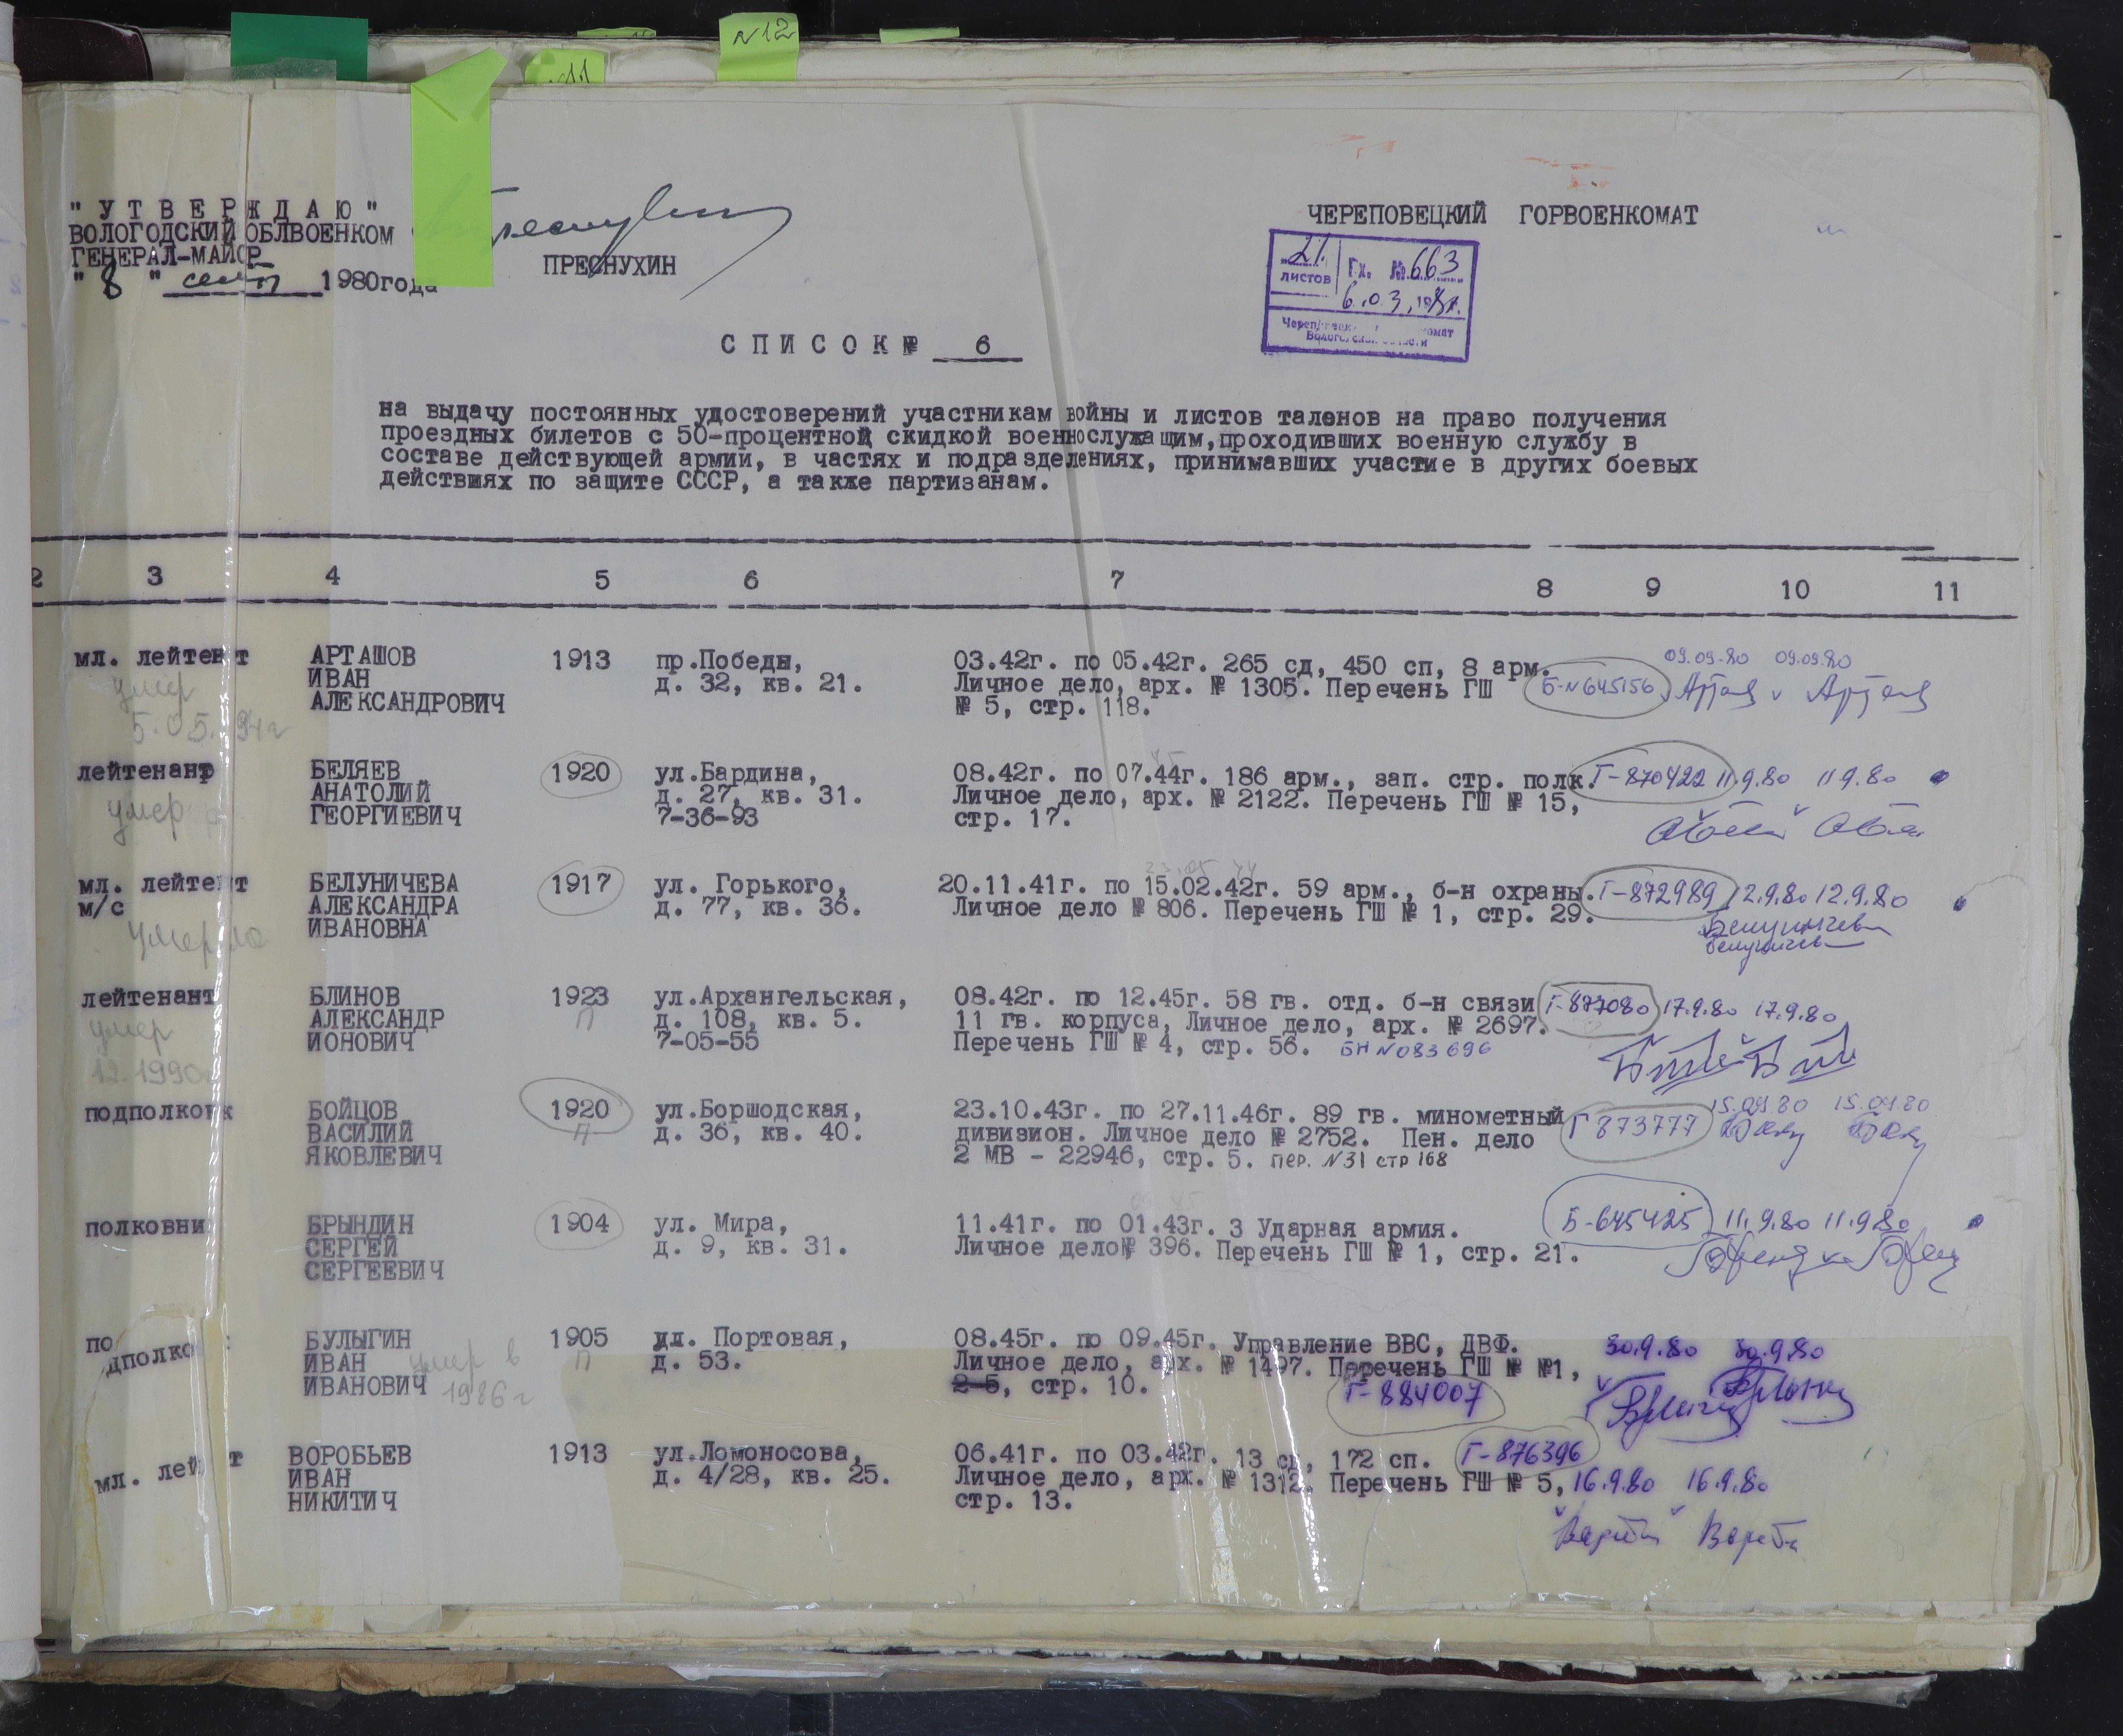 N12
11
" У Т В Е Р Ж Д А Ю "
ВОЛОГОДСКИЙ ОБЛВОЕНКОМ
ГЕНЕРАЛ-МАЙОР
ПРЕСНУХИН
" 8 " сент 1980года
ЧЕРЕПОВЕЦКИЙ ГОРВОЕНКОМАТ
21 листов Вх. № 663
6.03.
С П И С О К № 6
на выдачу постоянных удостоверений участникам войны и листов талонов на право получения
проездных билетов с 50-процентной скидкой военнослужащим,проходивших военную службу в
составе действующей армии, в частях и подразделениях, принимавших участие в других боевых
действиях по защите СССР, а также партизанам.
2 3 4 5 6 7 8 9 10 11
мл. лейтен т АРТАШОВ 1913 пр.Победы, 03.42г. по 05.42г. 265 сд, 450 сп, 8 арм. 09.09.80 09.09.80
умер ИВАН д. 32, кв. 21. Личное дело, арх. № 1305. Перечень ГШ Б-N645156
5.05.94г АЛЕКСАНДРОВИЧ № 5, стр. 118.
лейтенант БЕЛЯЕВ 1920 ул.Бардина, 08.42г. по 07.44г. 186 арм., зап. стр. полк. Г-870422 11.9.80 11.9.80
умер АНАТОЛИЙ д. 27, кв. 31. Личное дело, арх. № 2122. Перечень ГШ № 15,
ГЕОРГИЕВИЧ 7-36-93 стр. 17.
мл. лейтен т БЕЛУНИЧЕВА 1917 ул. Горького, 20.11.41г. по 15.02.42г. 59 арм., б-н охраны. Г-872989 12.9.80 12.9.80
м/с АЛЕКСАНДРА д. 77, кв. 36. Личное дело № 806. Перечень ГШ № 1, стр. 29.
умерла ИВАНОВНА Белуничева
Белуничева
лейтенант БЛИНОВ 1923 ул.Архангельская, 08.42г. по 12.45г. 58 гв. отд. б-н связи Г-877080 17.9.80 17.9.80
умер АЛЕКСАНДР П д. 108, кв. 5. 11 гв. корпуса, Личное дело, арх. № 2697.
12.1990 ИОНОВИЧ 7-05-55 Перечень ГШ № 4, стр. 56. БН N083696
подполковк БОЙЦОВ 1920 ул.Боршодская, 23.10.43г. по 27.11.46г. 89 гв. минометный Г 873777 15.09.80 15.09.80
ВАСИЛИЙ П д. 36, кв. 40. дивизион. Личное дело № 2752. Пен. дело
ЯКОВЛЕВИЧ 2 МВ - 22946, стр. 5. пер. N31 стр 168
полковни БРЫНДИН 1904 ул. Мира, 11.41г. по 01.43г. 3 Ударная армия. Б-645425 11.9.80 11.9.80
СЕРГЕЙ д. 9, кв. 31. Личное дело№ 396. Перечень ГШ № 1, стр. 21.
СЕРГЕЕВИЧ
подполко БУЛЫГИН 1905 ул. Портовая, 08.45г. по 09.45г. Управление ВВС, ДВФ. 30.9.80 30.9.80
ИВАН умер в П д. 53. Личное дело, арх. № 1497. Перечень ГШ № №1,
ИВАНОВИЧ 1986г 2-5, стр. 10. Г-884007
мл. лей т ВОРОБЬЕВ 1913 ул.Ломоносова, 06.41г. по 03.42г. 13 сд, 172 сп. Г-876396
ИВАН д. 4/28, кв. 25. Личное дело, арх. № 1312. Перечень ГШ № 5, 16.9.80 16.9.80
НИКИТИЧ стр. 13.